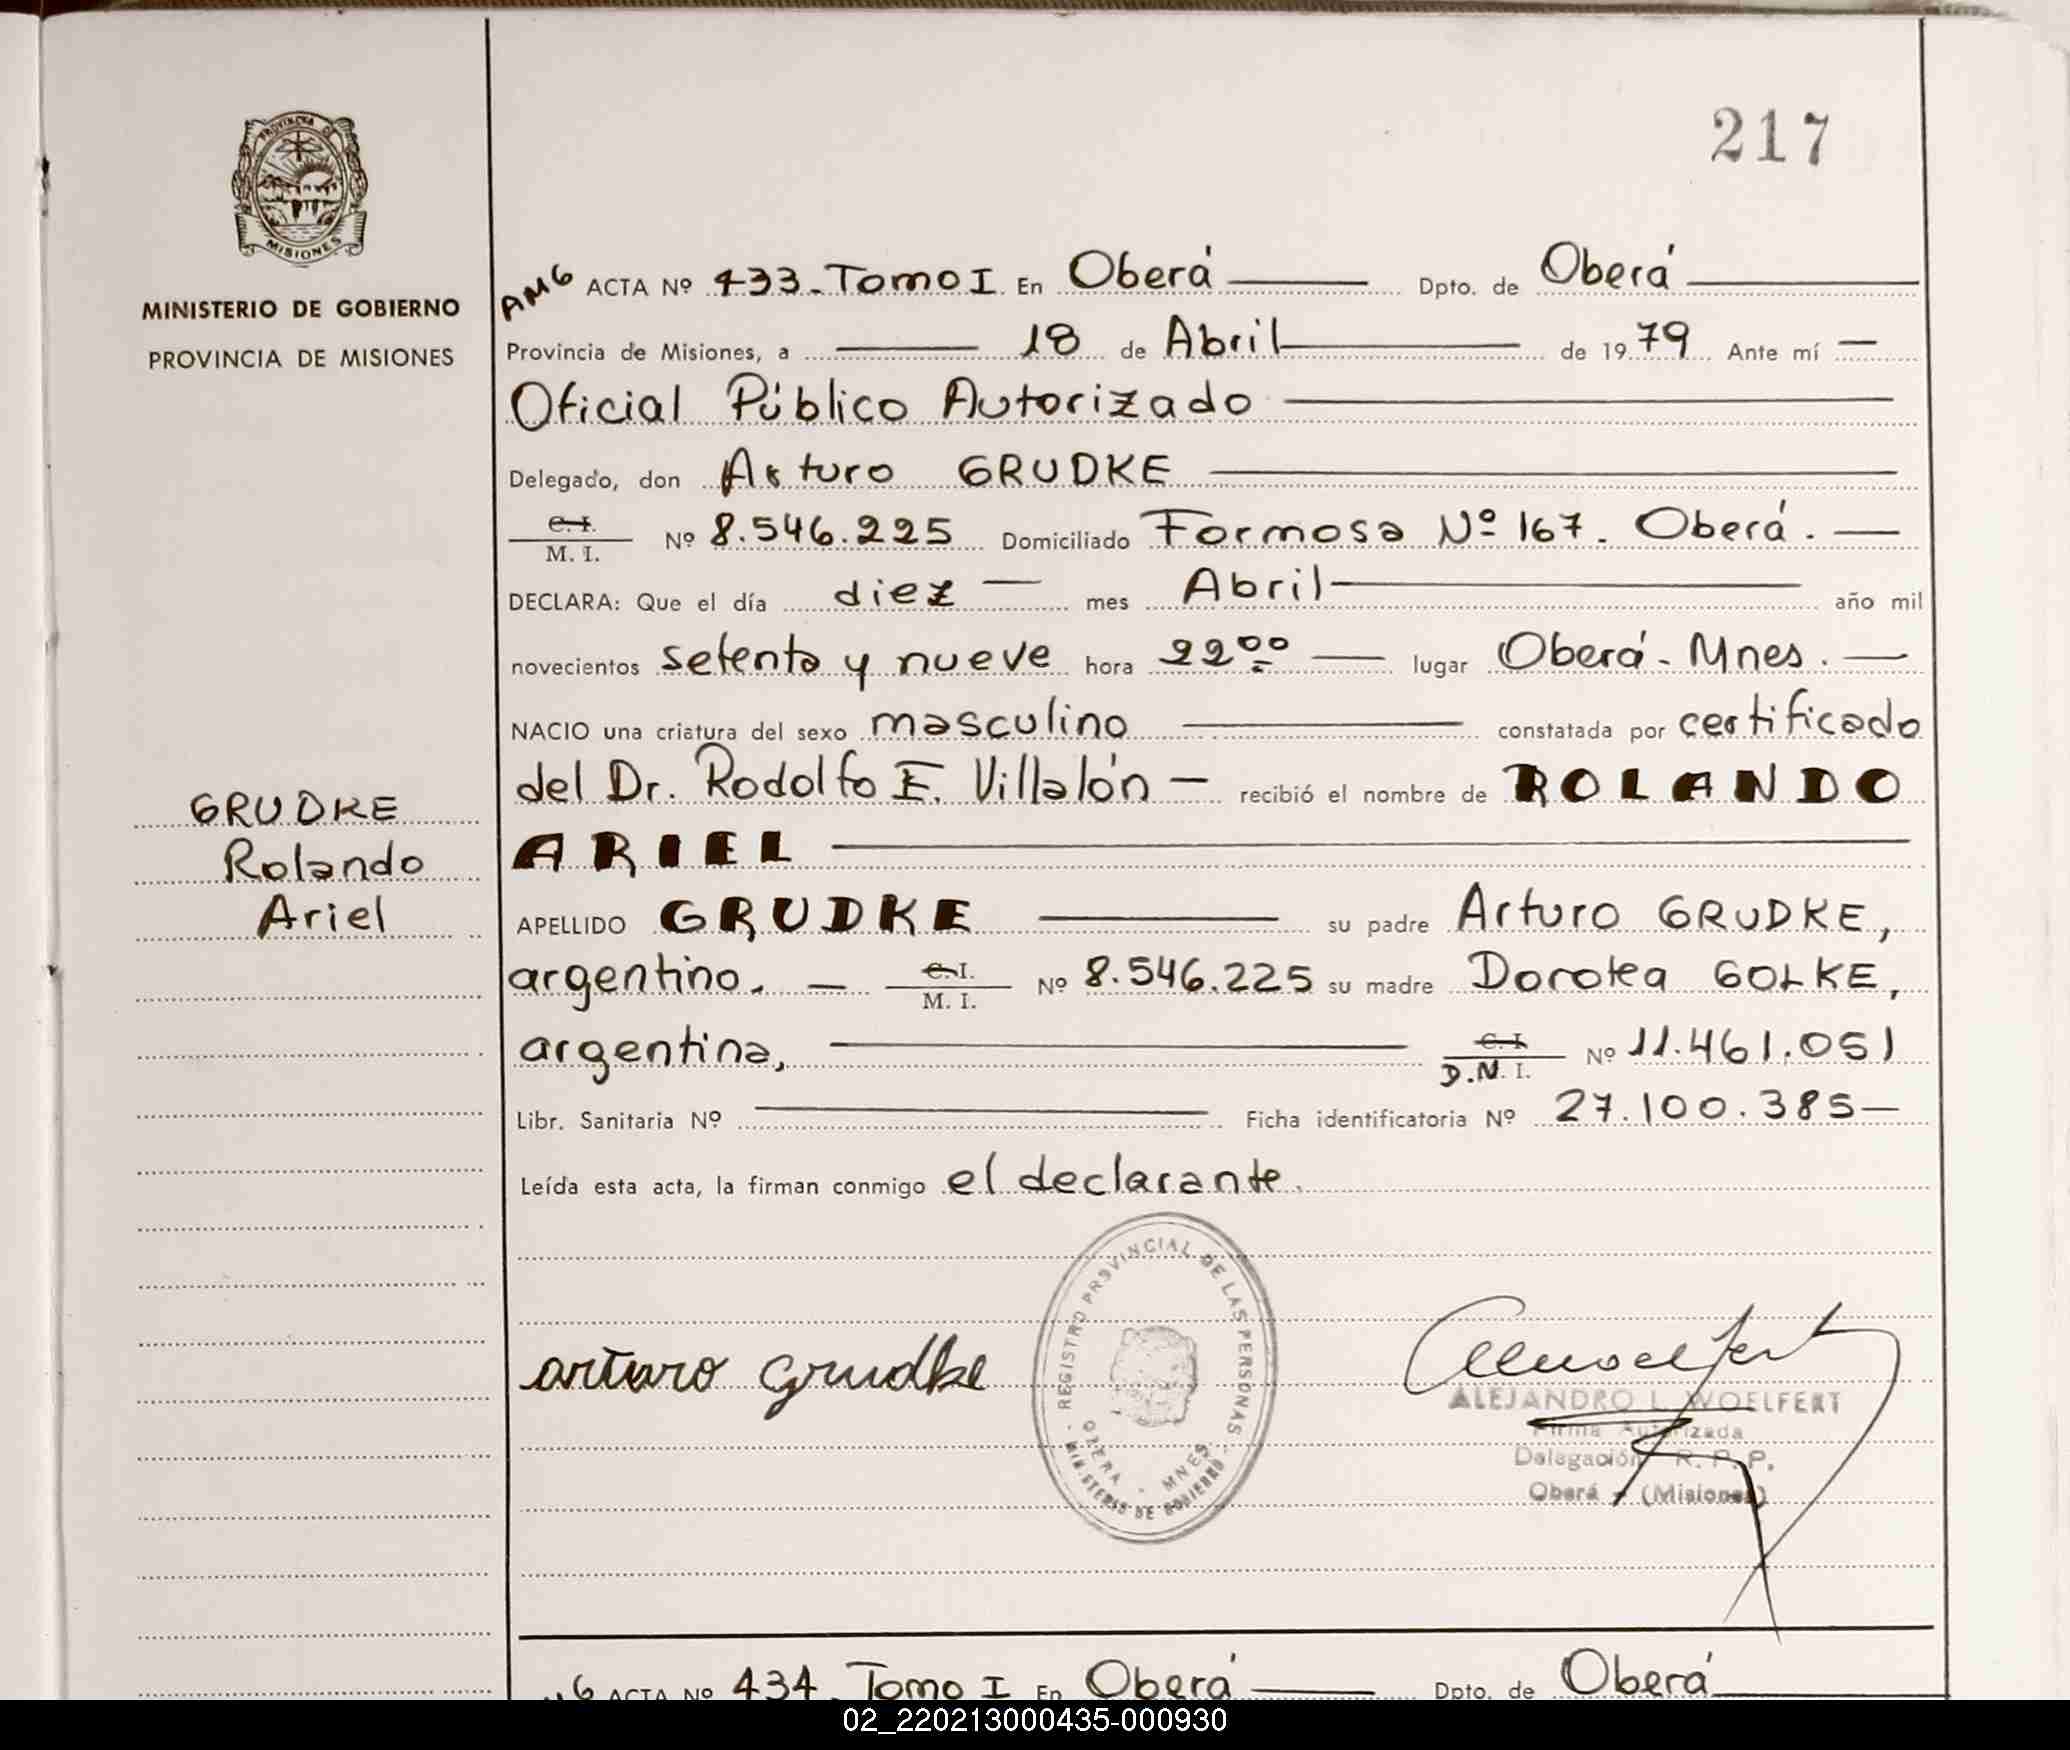 217
PROVINCIA DE
MISIONES
MINISTERIO DE GOBIERNO
PROVINCIA DE MISIONES
AMG ACTA Nº 433-Tomo I En Oberá Dpto. de Oberá
Provincia de Misiones, a 18 de Abril de 1979 Ante mí
Oficial Público Autorizado
Delegado, don Arturo GRUDKE
C. I.
M. I. Nº 8.546.225 Domiciliado Formosa Nº 167. Oberá.
DECLARA: Que el día diez mes Abril año mil
novecientos setenta y nueve hora 22⁰⁰ lugar Oberá-Mnes.
NACIO una criatura del sexo masculino constatada por certificado
del Dr. Rodolfo E. Villalón recibió el nombre de ROLANDO
ARIEL
APELLIDO GRUDKE su padre Arturo GRUDKE,
argentino. C. I. M. I. Nº 8.546.225 su madre Dorotea GOLKE,
argentina, C. I. D.N. I. Nº 11.461.051
Libr. Sanitaria Nº Ficha identificatoria Nº 27.100.385
Leída esta acta, la firman conmigo el declarante.
GRUDKE
Rolando
Ariel
arturo Grudke
REGISTRO PROVINCIAL DE LAS PERSONAS
OBERA - MNES
MINISTERIO DE GOBIERNO
ALEJANDRO L. WOELFERT
Firma Autorizada
Delegación R. P. P.
Oberá - (Misiones)
ACTA Nº 434 Tomo I En Oberá Dpto. de Oberá
02_220213000435-000930